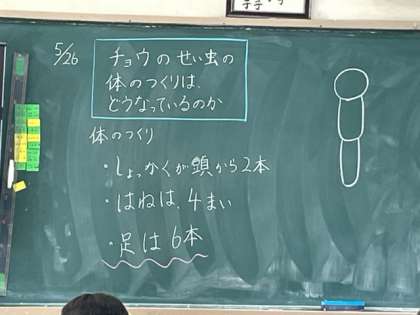 5/26
チョウのせい虫の
体のつくりは、
どうなっているのか
体のつくり
・しょっかくが頭から2本
・はねは、4まい
・足は6本